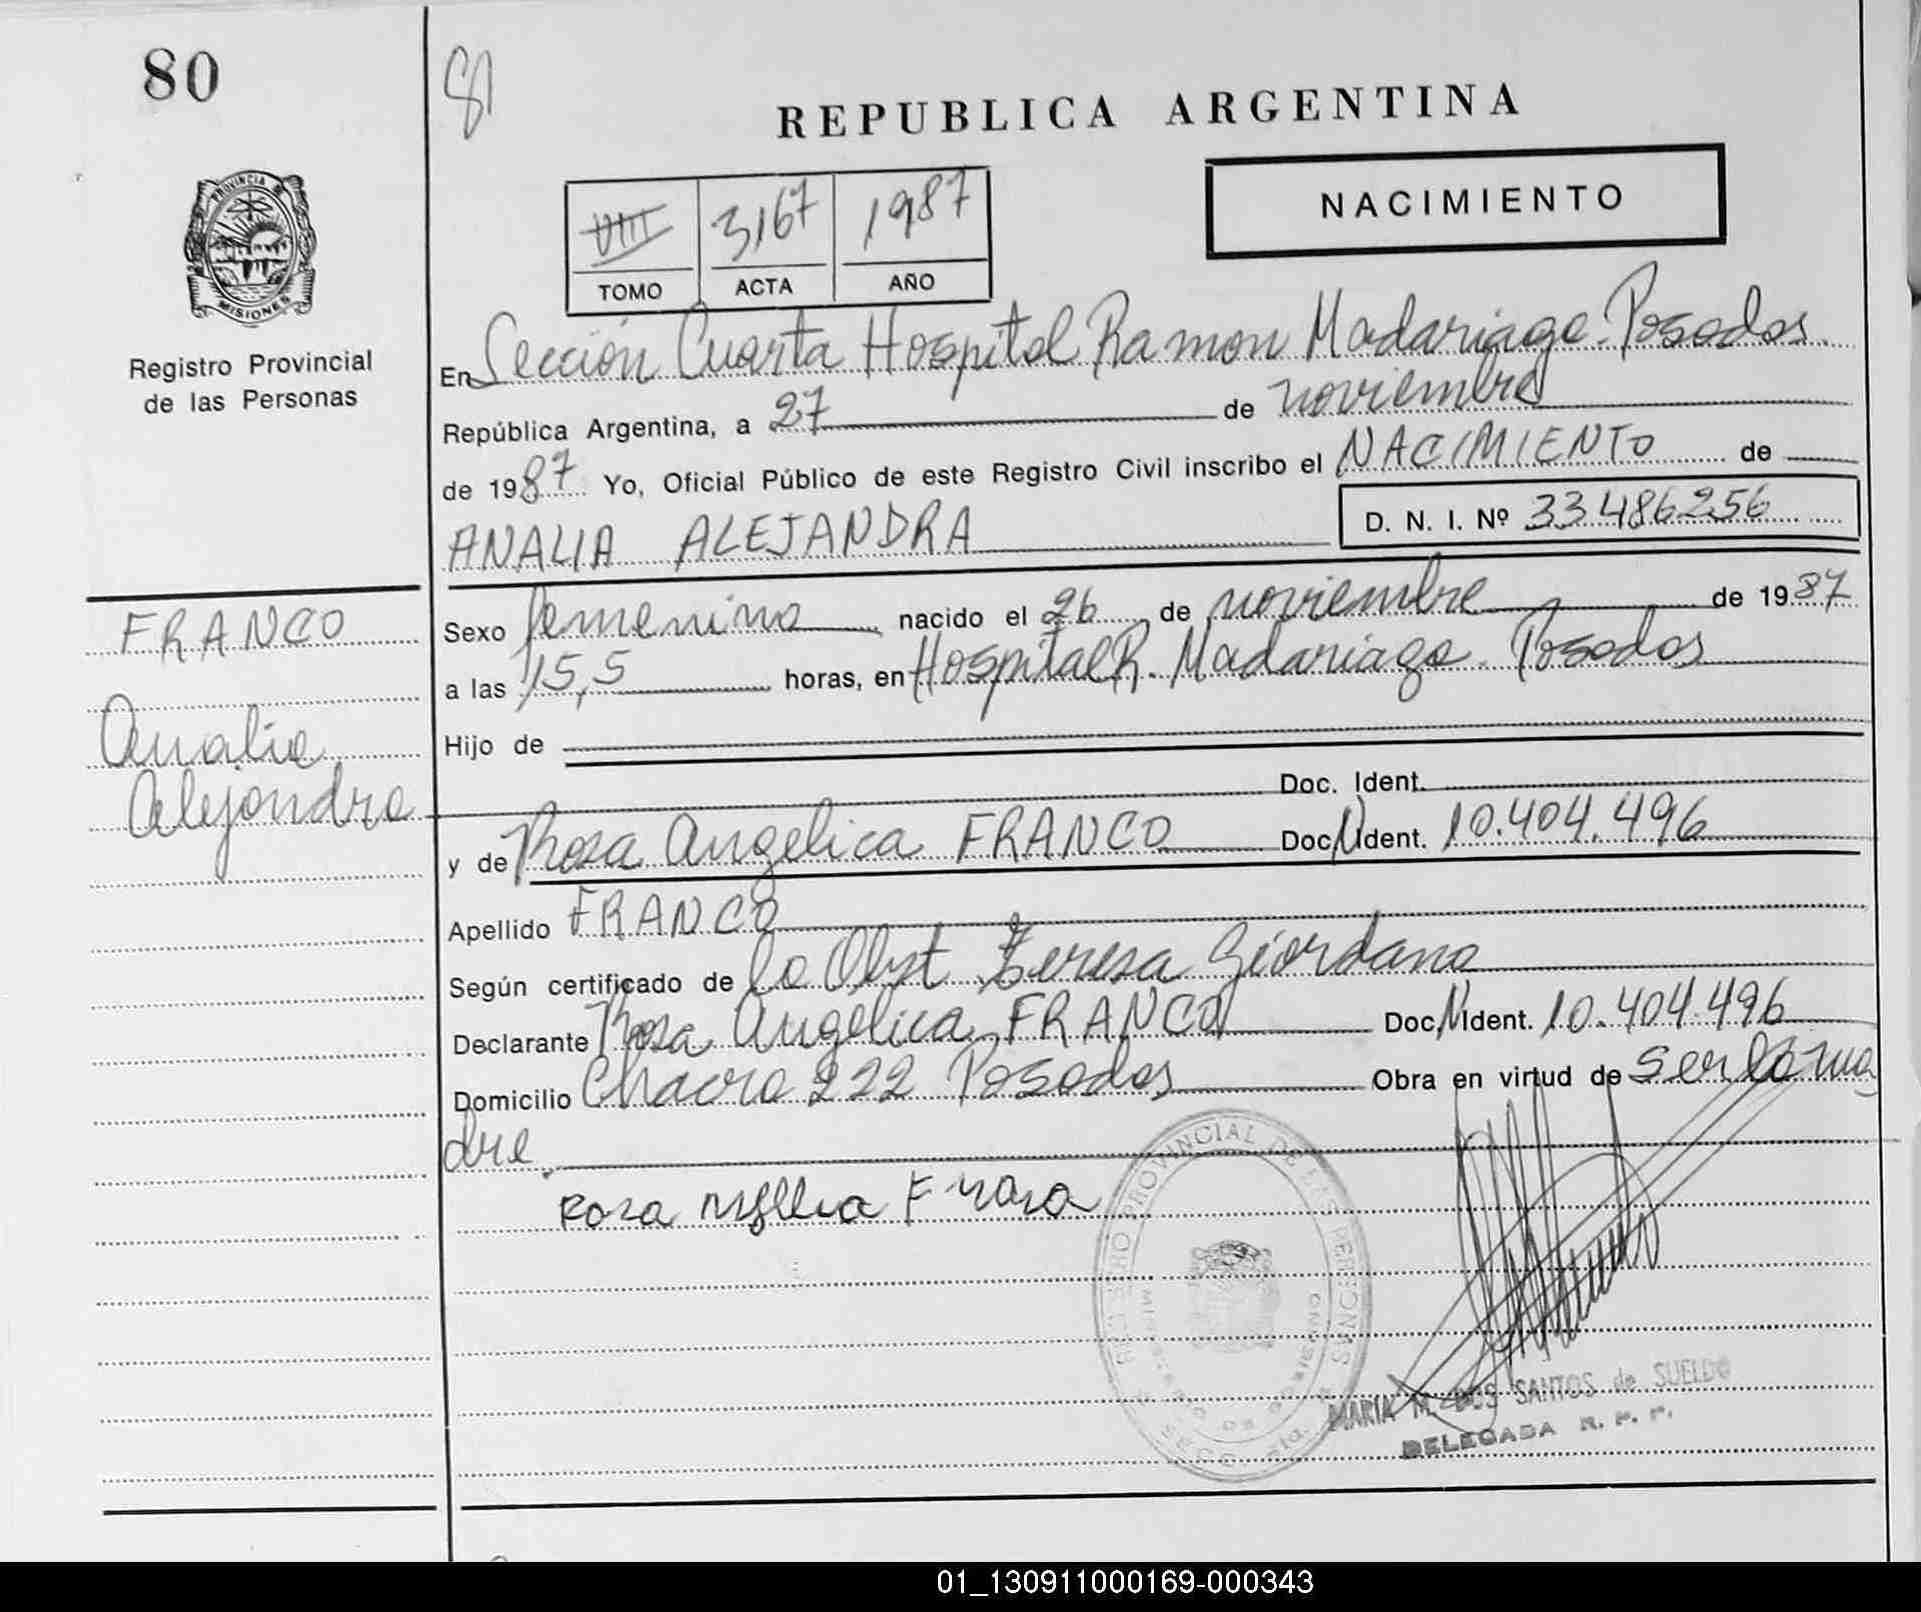 80
81
REPUBLICA ARGENTINA
NACIMIENTO
VIII 3167 1987
TOMO ACTA AÑO
PROVINCIA DE
MISIONES
Registro Provincial
de las Personas
En Sección Cuarta Hospital Ramon Madariaga. Posadas.
República Argentina, a 27 de noviembre
de 1987 Yo, Oficial Público de este Registro Civil inscribo el NACIMIENTO de
ANALIA ALEJANDRA D. N. I. Nº 33486256
FRANCO
Analia
Alejandra
Sexo femenino nacido el 26 de noviembre de 1987
a las 15,5 horas, en Hospital R. Madariaga. Posadas
Hijo de
Doc. Ident.
y de Rosa Angelica FRANCO Doc N Ident. 10.404.496
Apellido FRANCO
Según certificado de la Obst Teresa Giordano
Declarante Rosa Angelica FRANCO Doc N Ident. 10.404.496
Domicilio Chacra 222 Posadas Obra en virtud de ser la ma
dre.
Rosa
REGISTRO PROVINCIAL DE LAS PERSONAS
MARIA M. DOS SANTOS de SUELDO
DELEGADA R. P. P.
01_130911000169-000343